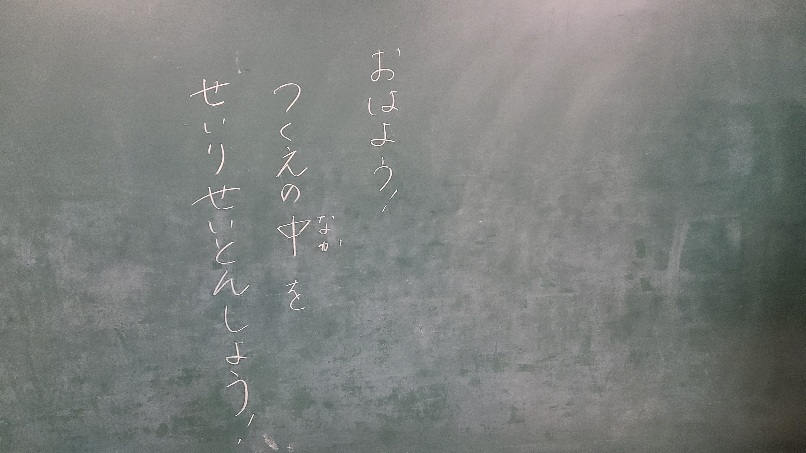 おはよう!
つくえの中を
なか
せいりせいとんしよう!